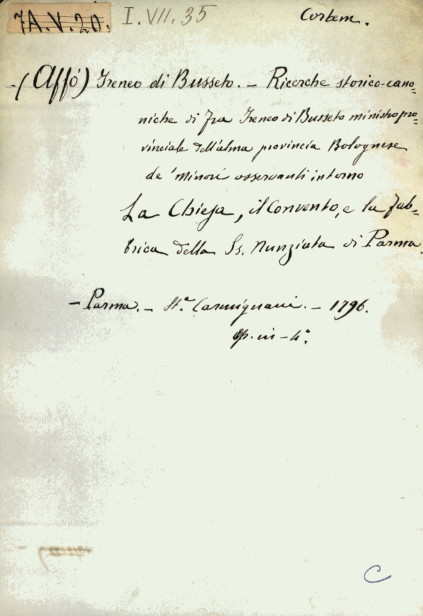 7A.V.20. I.VII.35 Cortem.
-(Affò) Ireneo di Busseto. - Ricerche storico-cano=
niche di Fra Ireneo di Busseto ministro pro=
vinciale dell'alma provincia Bolognese
de' minori osservanti intorno
La Chiesa, il Convento, e la Fab=
brica della Ss. Nunziata di Parma.
- Parma. - St.ª Carmignani. - 1796.
op. in - 4.º
C